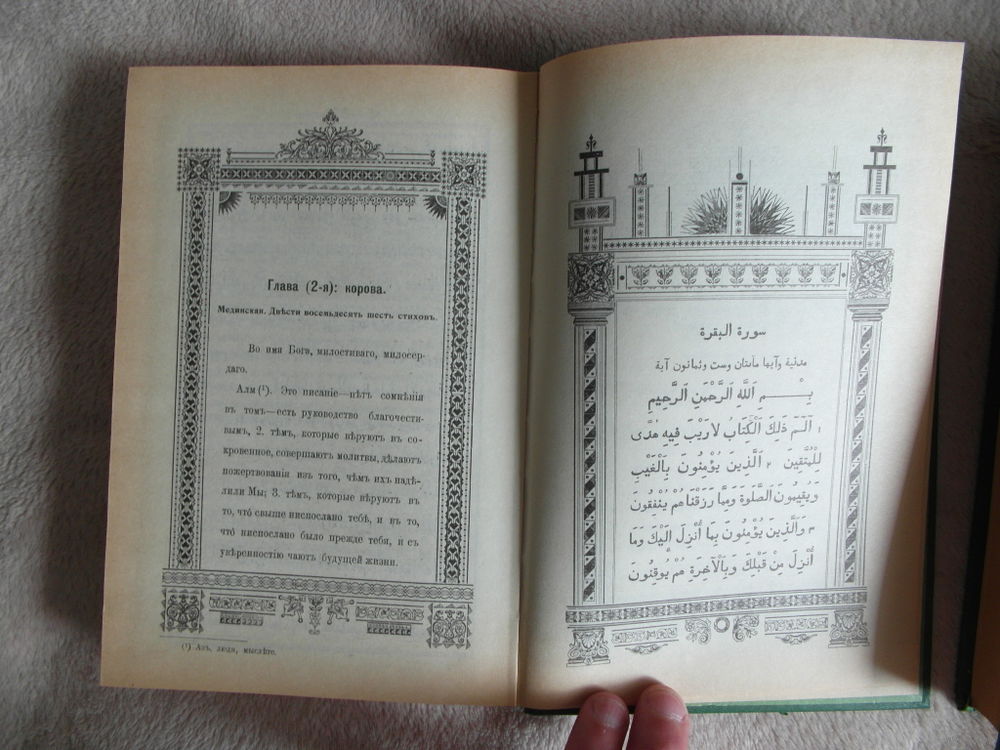 Глава (2-я): корова.
Мединская. Двѣсти восемьдесять шесть стиховъ.
Во имя Бога, милостиваго, милосер-
даго.
Алм (¹). Это писаніе—нѣтъ сомнѣнія
въ томъ—есть руководство благочести-
вымъ, 2. тѣмъ, которые вѣруютъ въ со-
кровенное, совершаютъ молитвы, дѣлаютъ
пожертвованія изъ того, чѣмъ ихъ надѣ-
лили Мы; 3. тѣмъ, которые вѣруютъ въ
то, что́ свыше ниспослано тебѣ, и въ то,
что́ ниспослано было прежде тебя, и съ
увѣренностію чаютъ будущей жизни.
(¹) Азъ, люди, мыслѣте.
سورة البقرة
مدنية وآيها مأىتان وست وثمانون آية
بِسْــــمِ اَللّٰهِ اَلرَّحْمَنِ اَلرَّحِيمِ
١ اَلَـمَ ذَلِكَ اَلْكِتَابُ لَا رَيْبَ فِيهِ هُدًى
لِلْمُتَّقِينَ ٢ اَلَّذِينَ يُؤْمِنُونَ بِاَلْغَيْبِ
وَيُقِيمُونَ اَلصَّلَوةَ وَمِمَّا رَزَقْنَاهُمْ يُنْفِقُونَ
٣ وَاَلَّذِينَ يُؤْمِنُونَ بِمَا أُنْزِلَ إِلَيْكَ وَمَا
أُنْزِلَ مِنْ قَبْلِكَ وَبِاَلْآخِرَةِ هُمْ يُوقِنُونَ